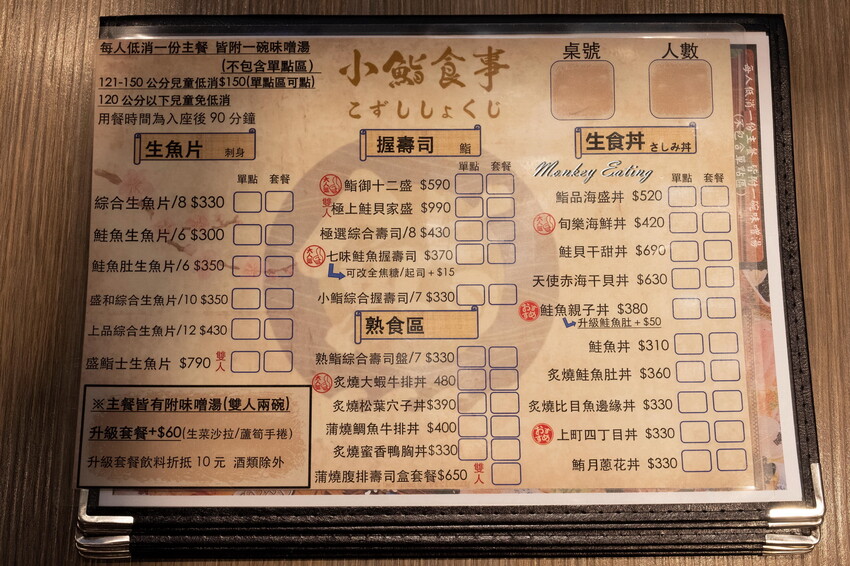 每人低消一份主餐 皆附一碗味噌湯
(不包含單點區)
121-150 公分兒童低消$150(單點區可點)
120 公分以下兒童免低消
用餐時間為入座後 90 分鐘
小鮨食事
こずししょくじ
桌號
人數
每人低消一份主餐 皆附一碗味噌湯
(不包含單點區)
生魚片 刺身
單點 套餐
綜合生魚片/8 $330
鮭魚生魚片/6 $300
鮭魚肚生魚片/6 $350
盛和綜合生魚片/10 $350
上品綜合生魚片/12 $430
盛鮨士生魚片 $790 雙人
※主餐皆有附味噌湯(雙人兩碗)
升級套餐+$60(生菜沙拉/蘆筍手捲)
升級套餐飲料折抵 10 元 酒類除外
握壽司 鮨
單點 套餐
鮨御十二盛 $590
雙人 極上鮭貝家盛 $990
極選綜合壽司/8 $430
七味鮭魚握壽司 $370
可改全焦糖/起司+$15
小鮨綜合握壽司/7 $330
熟食區
熟鮨綜合壽司盤/7 $330
炙燒大蝦牛排丼 480
炙燒松葉穴子丼$390
蒲燒鯛魚牛排丼 $400
炙燒蜜香鴨胸丼$330
蒲燒腹排壽司盒套餐$650 雙人
生食丼 さしみ丼
Monkey Eating
單點 套餐
鮨品海盛丼 $520
旬樂海鮮丼 $420
鮭貝干甜丼 $690
天使赤海干貝丼 $630
鮭魚親子丼 $380
升級鮭魚肚+$50
鮭魚丼 $310
炙燒鮭魚肚丼 $360
炙燒比目魚邊緣丼 $330
上町四丁目丼 $330
鮪月蔥花丼 $330